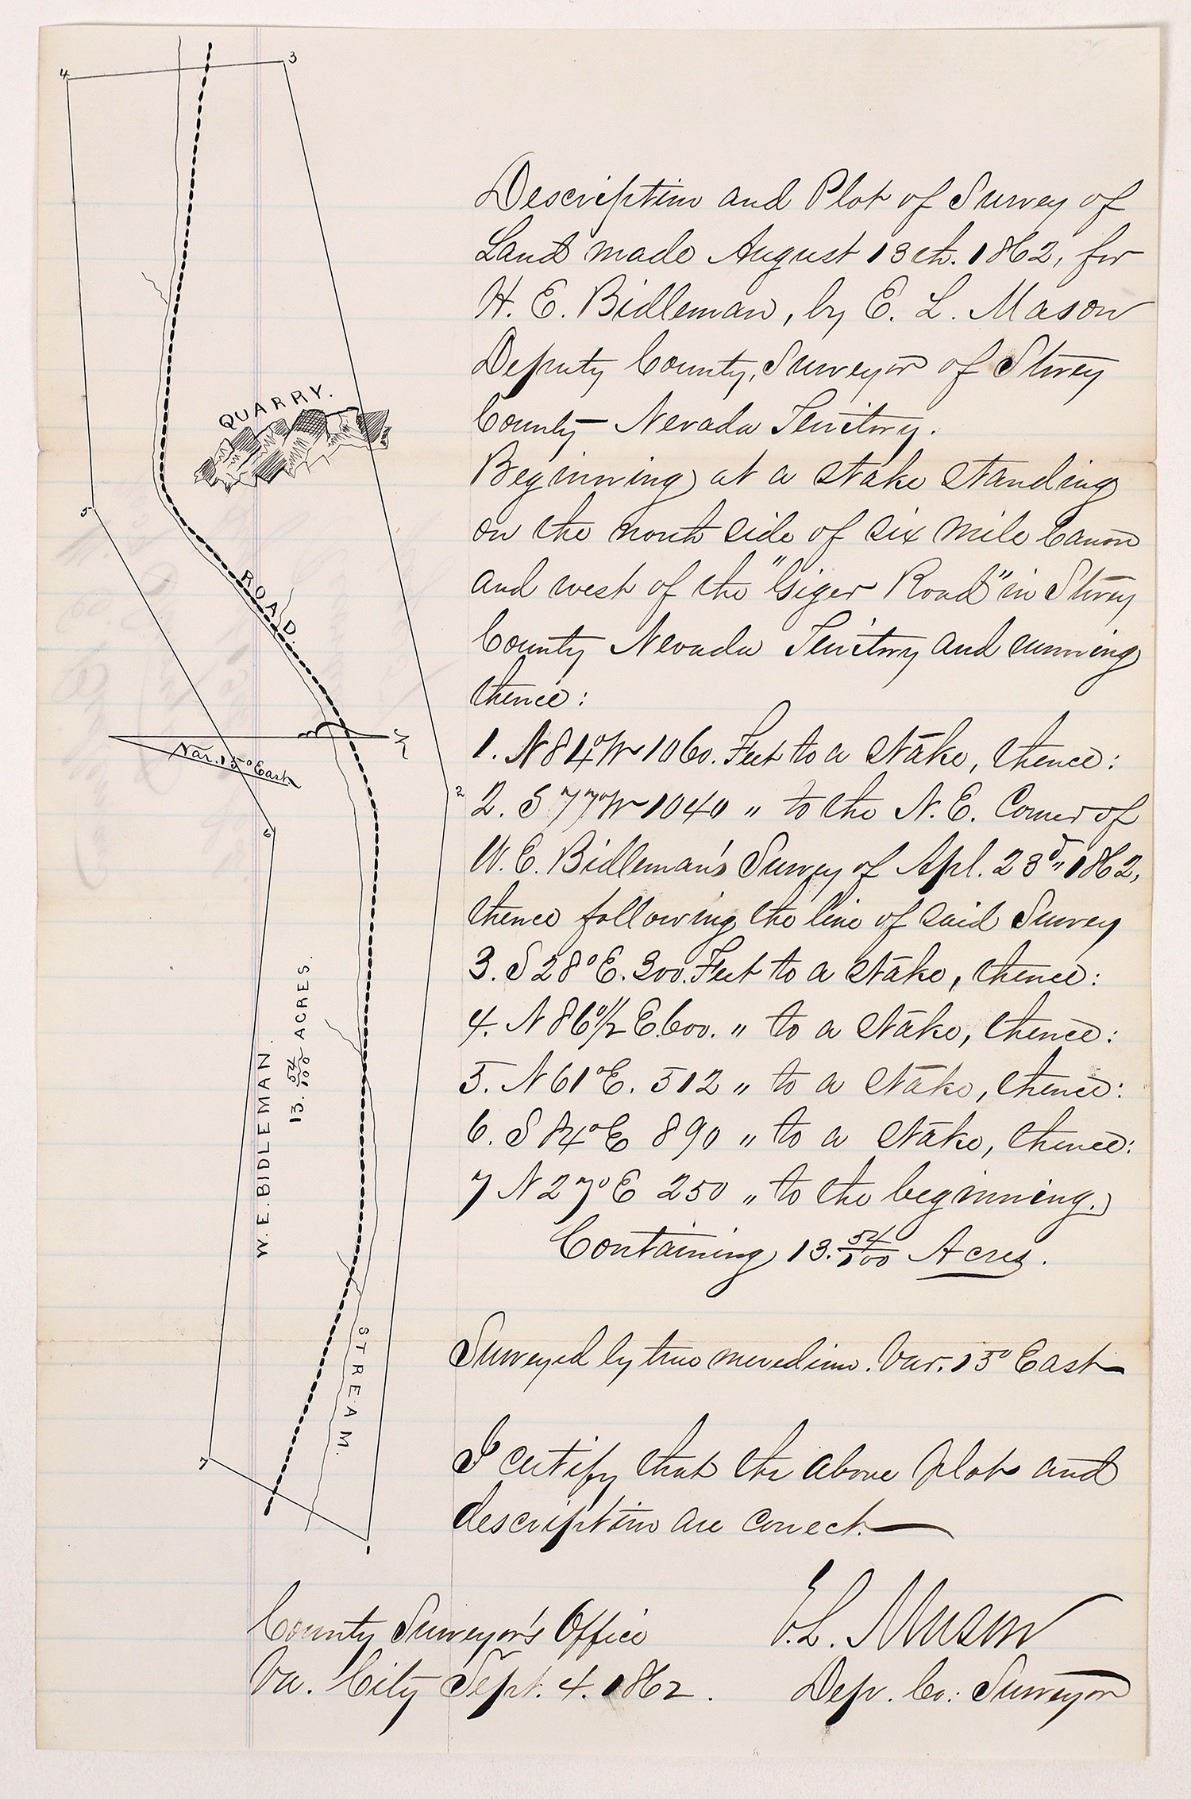 4
3
QUARRY.
5
ROAD.
Var. 15° East
2
6
W. E. BIDLEMAN.
13. 54/100 ACRES.
STREAM.
7
1
Description and Plot of Survey of
Land made August 13th. 1862, for
H. E. Bidleman, by E. L. Mason
Deputy County, Surveyor of Storey
County - Nevada Territory.
Beginning at a Stake Standing
on the north side of six mile Canon
and west of the "Giger Road" in Storey
County Nevada Territory and running
thence:
1. N 81° W 1060. Feet to a Stake, thence:
2. S 77° W 1040 " to the N. E. Corner of
W. E. Bidleman's Survey of Apl. 23d, 1862,
thence following the line of said Survey
3. S 28° E. 300. Feet to a Stake, thence:
4. N 86° 1/2 E. 600. " to a Stake, thence:
5. N 61° E. 512 " to a Stake, thence:
6. S 84° E 890 " to a Stake, thence:
7 N 27° E 250 " to the beginning.
Containing 13. 54/100 Acres.
Surveyed by true meredian. Var. 15° East
I certify that the above plot and
description are correct.
E. L. Mason
County Surveyor's Office
Va. City Sept. 4. 1862. Dep. Co: Surveyor